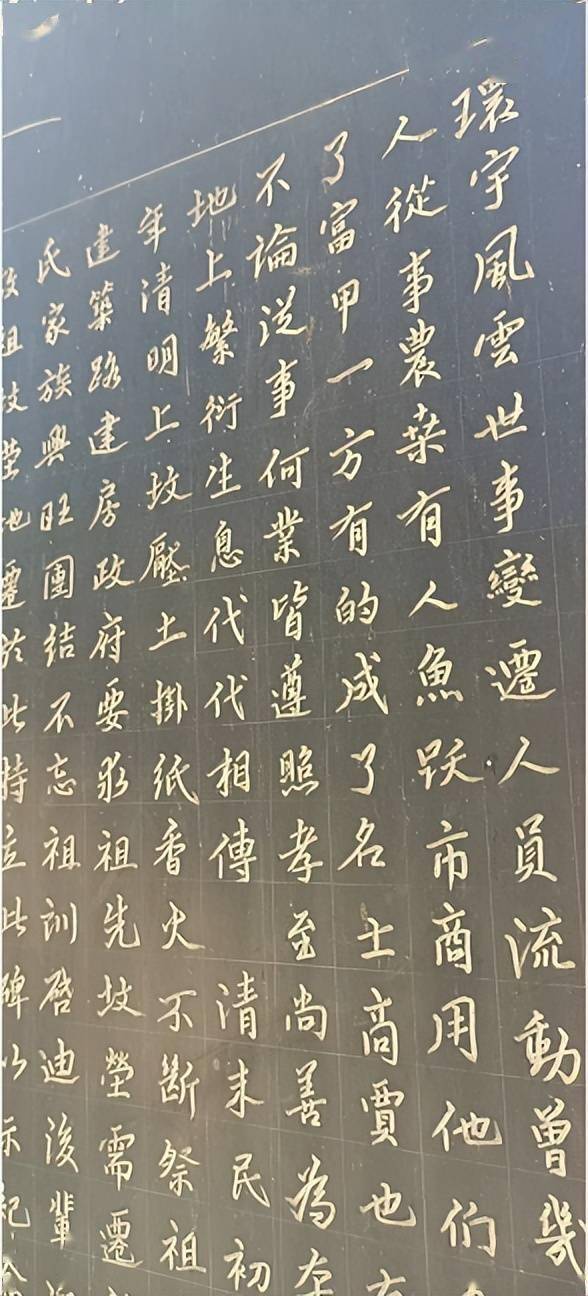 環宇風雲世事變遷人員流動曾幾
人從事農桒有人魚跃市商用他们
了富甲一方有的成了名士商賈也有
不論从事何業皆遵照孝至尚善為本
地上繁衍生息代代相傳 清末民初
年清明上坟壓土掛紙香火不斷祭祖
建築路建房政府要求祖先坟塋需遷
氏家族興旺團結不忘祖訓啓迪後輩
祖坟塋地遷於此特立此碑以示紀念